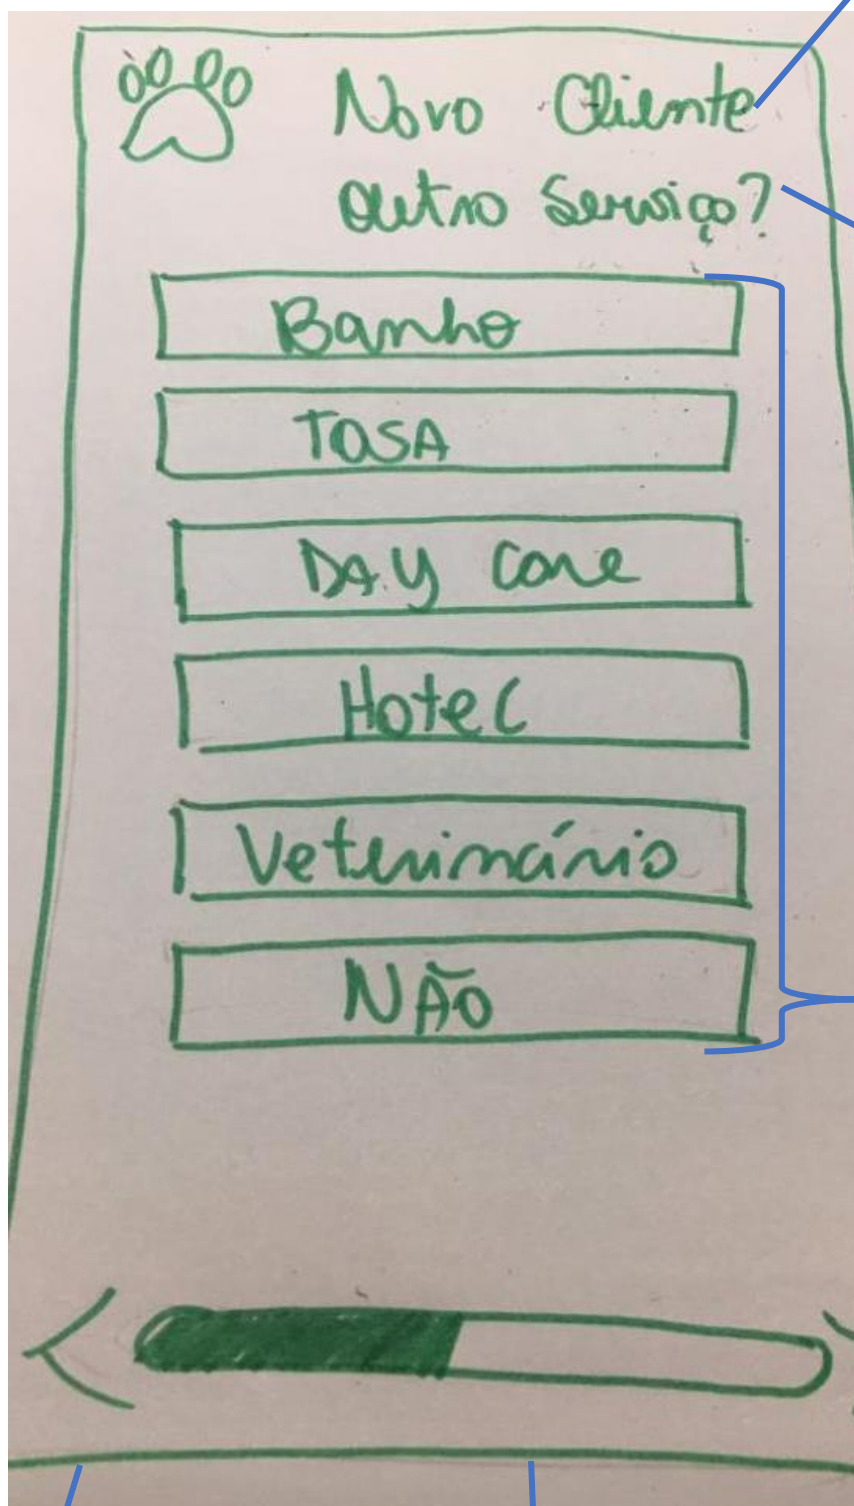 Novo Cliente
Outro Serviço?
Banho
TOSA
DAY Care
Hotel
Veterinário
NÃO